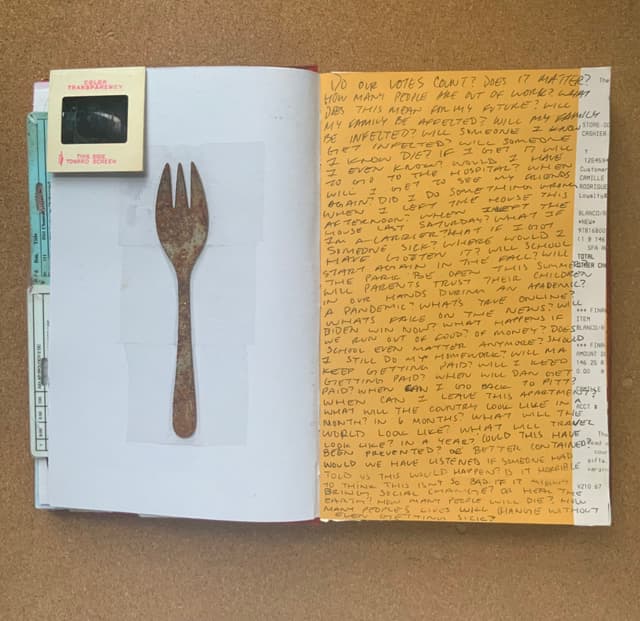 COLOR
TRANSPARENCY
THIS SIDE
TOWARD SCREEN
DO OUR VOTES COUNT? DOES IT MATTER?
HOW MANY PEOPLE ARE OUT OF WORK? WHAT
DOES THIS MEAN FOR MY FUTURE? WILL
MY FAMILY BE AFFECTED? WILL MY FAMILY
BE INFECTED? WILL SOMEONE I KNOW
GET INFECTED? WILL SOMEONE
I KNOW DIE? IF I GET IT WILL
I EVEN KNOW? WOULD I HAVE
TO GO TO THE HOSPITAL? WHEN
WILL I GET TO SEE MY FRIENDS
AGAIN? DID I DO SOMETHING WRONG
WHEN I LEFT THE HOUSE THIS
AFTERNOON? WHEN I LEFT THE
HOUSE LAST SATURDAY? WHAT IF
I'M A CARRIER? WHAT IF I GOT
SOMEONE SICK? WHERE WOULD I
HAVE GOTTEN IT? WILL SCHOOL
START AGAIN IN THE FALL? WILL
THE PARK BE OPEN THIS SUMMER?
WILL PARENTS TRUST THEIR CHILDREN
IN OUR HANDS DURING AN
A PANDEMIC? WHATS TRUE ONLINE?
WHATS FAKE ON THE NEWS? WILL
BIDEN WIN NOW? WHAT HAPPENS IF
WE RUN OUT OF FOOD? OF MONEY? DOES
SCHOOL EVEN MATTER ANYMORE? SHOULD
I STILL DO MY HOMEWORK? WILL MA
KEEP GETTING PAID? WILL I KEEP
GETTING PAID? WHEN WILL DAN GET
PAID? WHEN CAN I GO BACK TO PITT?
WHEN CAN I LEAVE THIS APARTMENT?
WHAT WILL THE COUNTRY LOOK LIKE IN A
MONTH? IN 6 MONTHS? WHAT WILL THE
WORLD LOOK LIKE? WHAT WILL TRAVEL
LOOK LIKE? IN A YEAR? COULD THIS HAVE
BEEN PREVENTED? OR BETTER CONTAINED?
WOULD WE HAVE LISTENED IF SOMEONE HAD
TOLD US THIS WOULD HAPPEN? IS IT HORRIBLE
TO THINK THIS ISN'T SO BAD IF IT MIGHT
BRING SOCIAL CHANGE? OR HEAL THE
EARTH? HOW MANY PEOPLE WILL DIE? HOW
MANY PEOPLE'S LIVES WILL CHANGE WITHOUT
EVEN GETTING SICK?
CASHIER
Customer
CAMILLE
RODRIGUE
*NEW*
TOTAL
ITEM
0.00
ACCT #